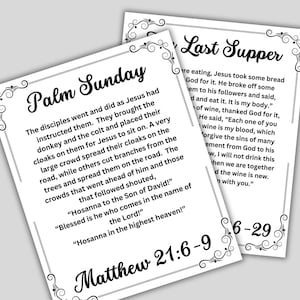 Palm Sunday
The disciples went and did as Jesus had
instructed them. They brought the
donkey and the colt and placed their
cloaks on them for Jesus to sit on. A very
large crowd spread their cloaks on the
road, while others cut branches from the
trees and spread them on the road. The
crowds that went ahead of him and those
that followed shouted,
"Hosanna to the Son of David!"
"Blessed is he who comes in the name of
the Lord!"
"Hosanna in the highest heaven!"
Matthew 21:6-9
Last Supper
were eating, Jesus took some bread
God for it. He broke off some
to his followers and said,
and eat it. It is my body."
of wine, thanked God for it,
He said, "Each one of you
wine is my blood, which
forgive the sins of many
agreement from God to his
now, I will not drink this
when we are together
and the wine is new.
with you."
6-29